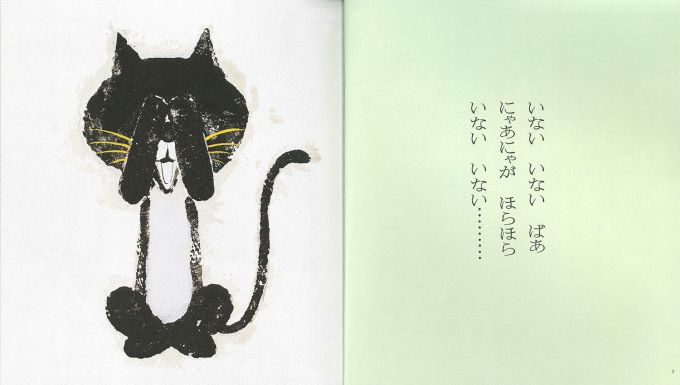 いない いない ばあ
にゃあにゃが ほらほら
いない いない…………
2